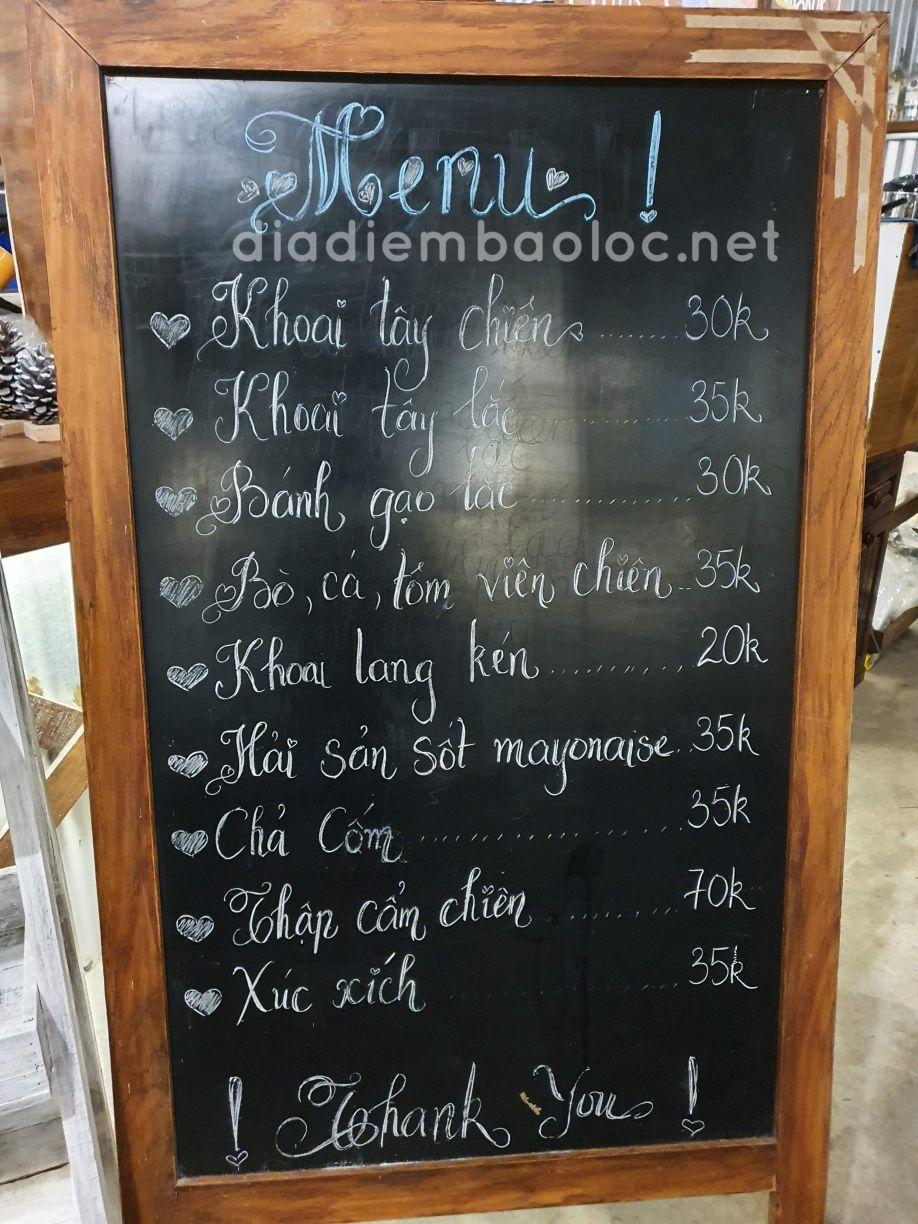 Menu !
diadiembaoloc.net
Khoai tây chiến ........ 30k
Khoai tây lắc ................ 35k
Bánh gạo lắc ................ 30k
Bò, cá, tôm viên chiên .. 35k
Khoai lang kén ............ 20k
Hải sản sốt mayonaise .. 35k
Chả Cốm ........................ 35k
Thập cẩm chiên .......... 70k
Xúc xích ...................... 35k
! Thank You !